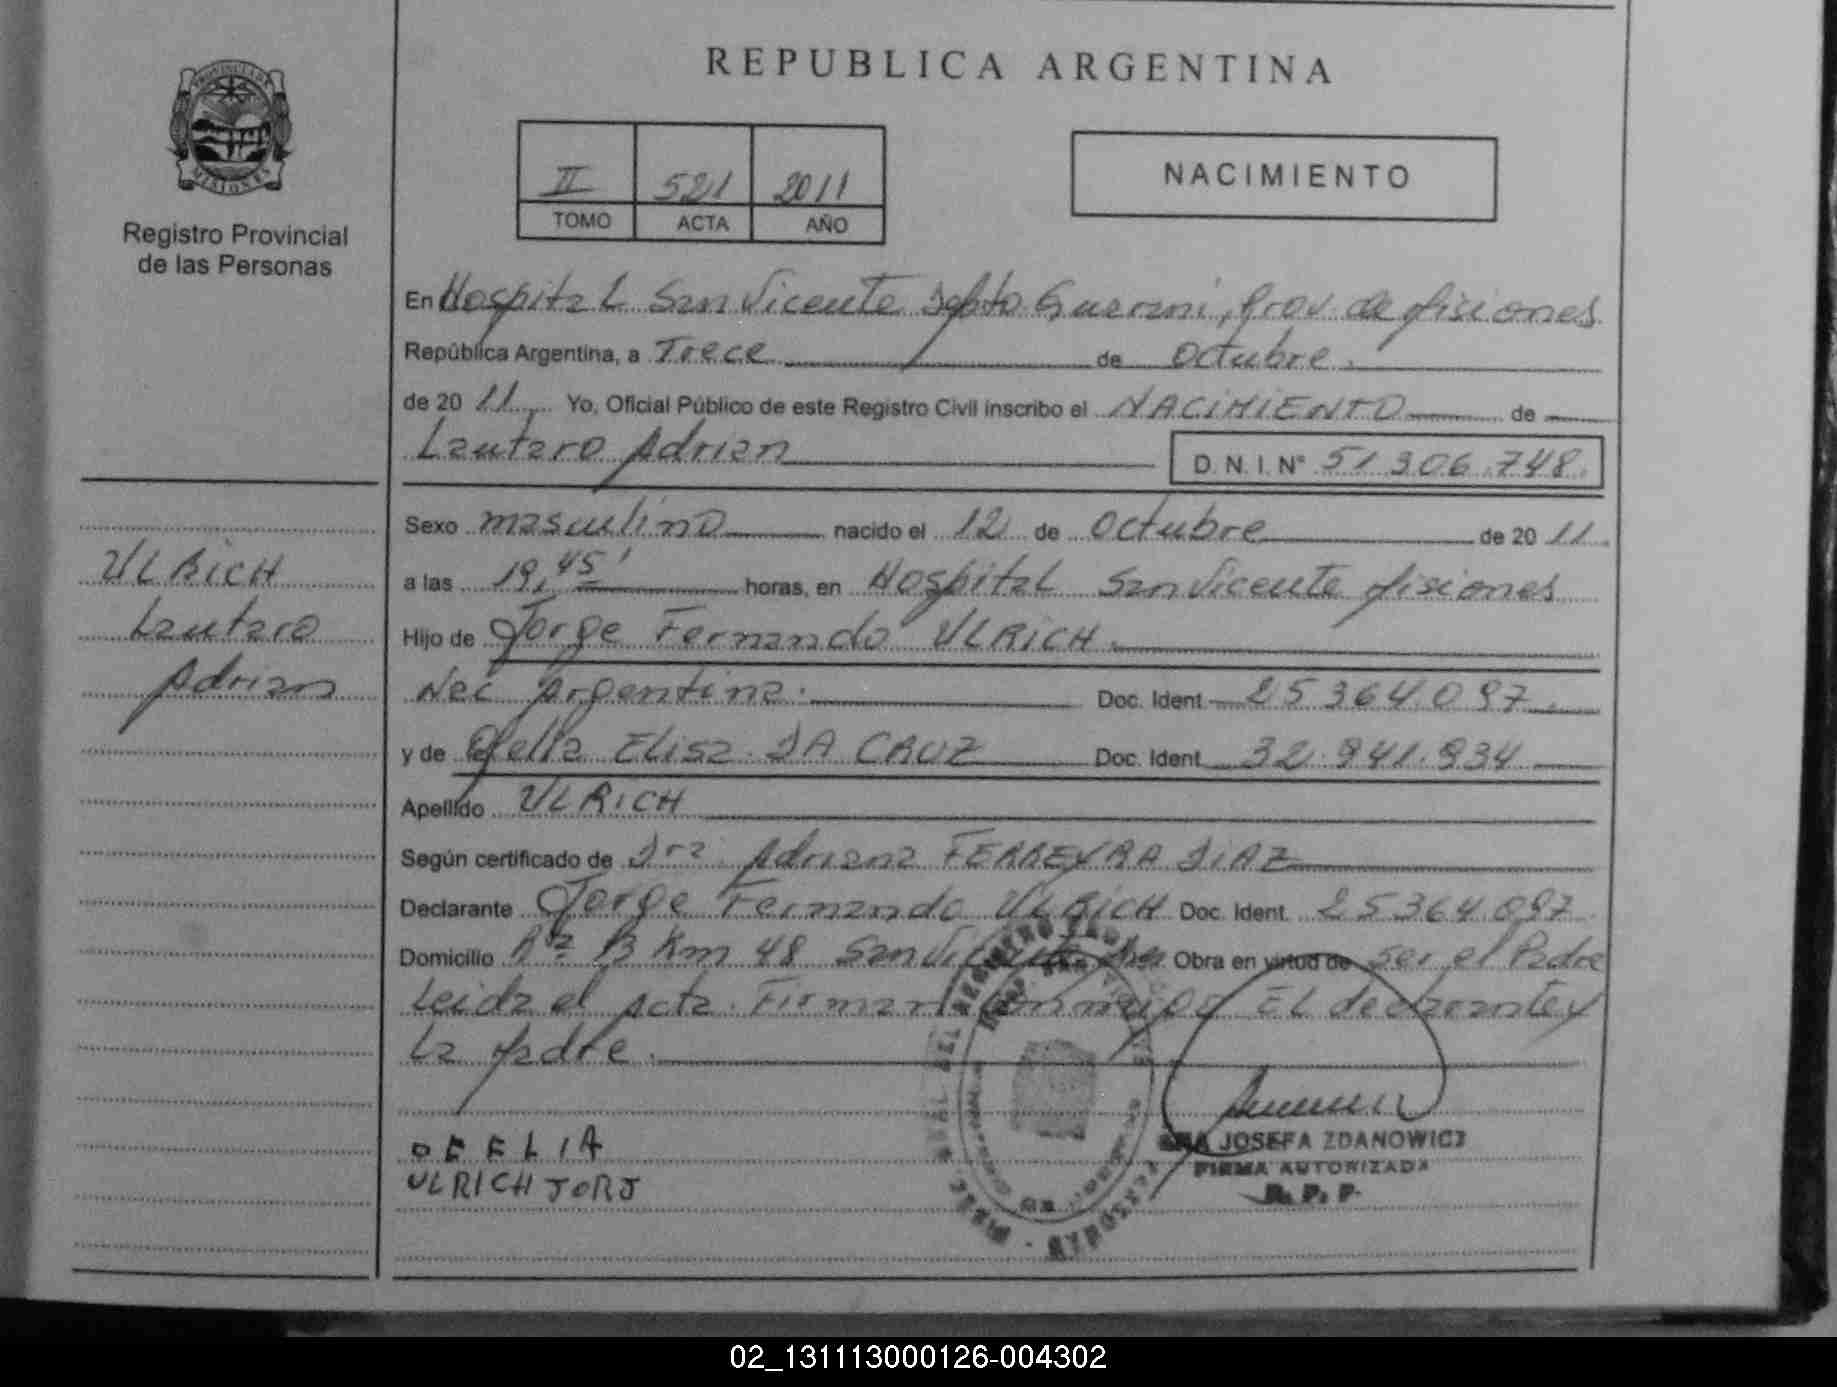 REPUBLICA ARGENTINA
PROVINCIA DE
MISIONES
Registro Provincial
de las Personas
II 521 2011
TOMO ACTA AÑO
NACIMIENTO
En Hospital San Vicente Dpto Guarani, Prov. de Misiones
República Argentina, a Trece de Octubre.
de 2011. Yo, Oficial Público de este Registro Civil inscribo el NACIMIENTO de
Lautaro Adrian D.N.I. Nº 51 306.748.
Sexo masculino nacido el 12 de Octubre de 2011
a las 19,45' horas, en Hospital San Vicente Misiones
Hijo de Jorge Fernando ULRICH.
Nac Argentina. Doc. Ident 25364.097.
y de Ofelia Elisa DA CRUZ Doc. Ident 32.941.934
Apellido ULRICH
Según certificado de Dra. Adriana FERREYRA DIAZ
Declarante Jorge Fernando ULRICH Doc. Ident. 25364.097.
Domicilio Rª 13 Km 48 San Vicente Obra en virtud de ser el Padre
Leida el Acta. Firman conmigo EL declarante y
La Madre.
ULRICH
Lautaro
Adrian
OFELIA
ULRICH JORJ
JOSEFA ZDANOWICZ
FIRMA AUTORIZADA
R. P. P.
02_131113000126-004302